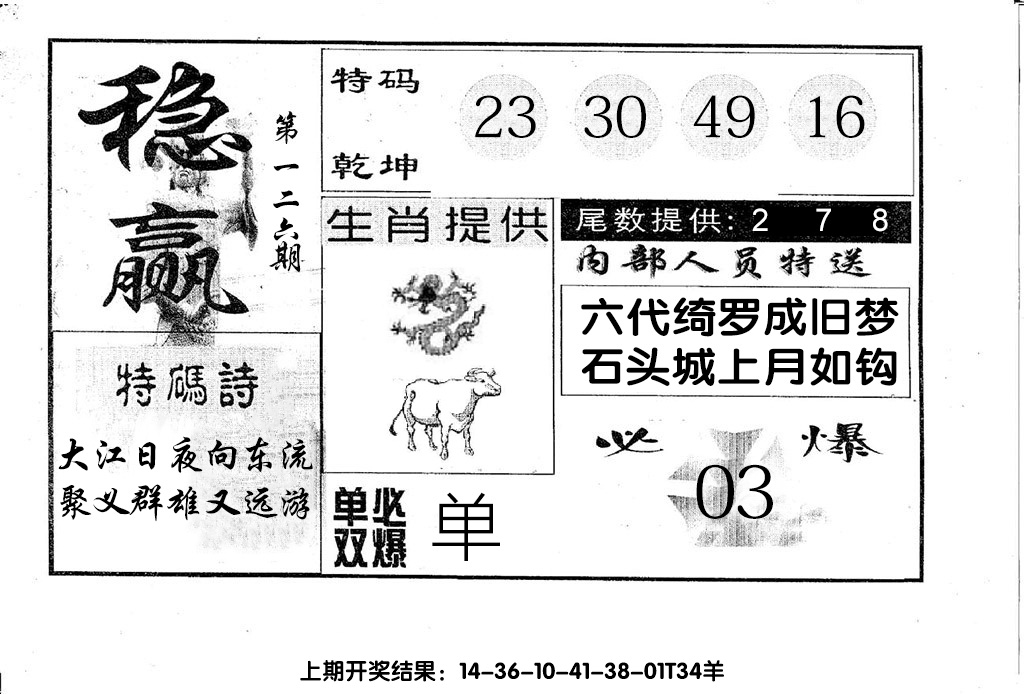 稳赢
第一二六期
特码
乾坤
23 30 49 16
生肖提供
尾数提供: 2 7 8
内部人员特送
六代绮罗成旧梦
石头城上月如钩
特碼詩
大江日夜向东流
聚义群雄又远游
必爆
03
单双必爆
单
上期开奖结果：14-36-10-41-38-01T34羊